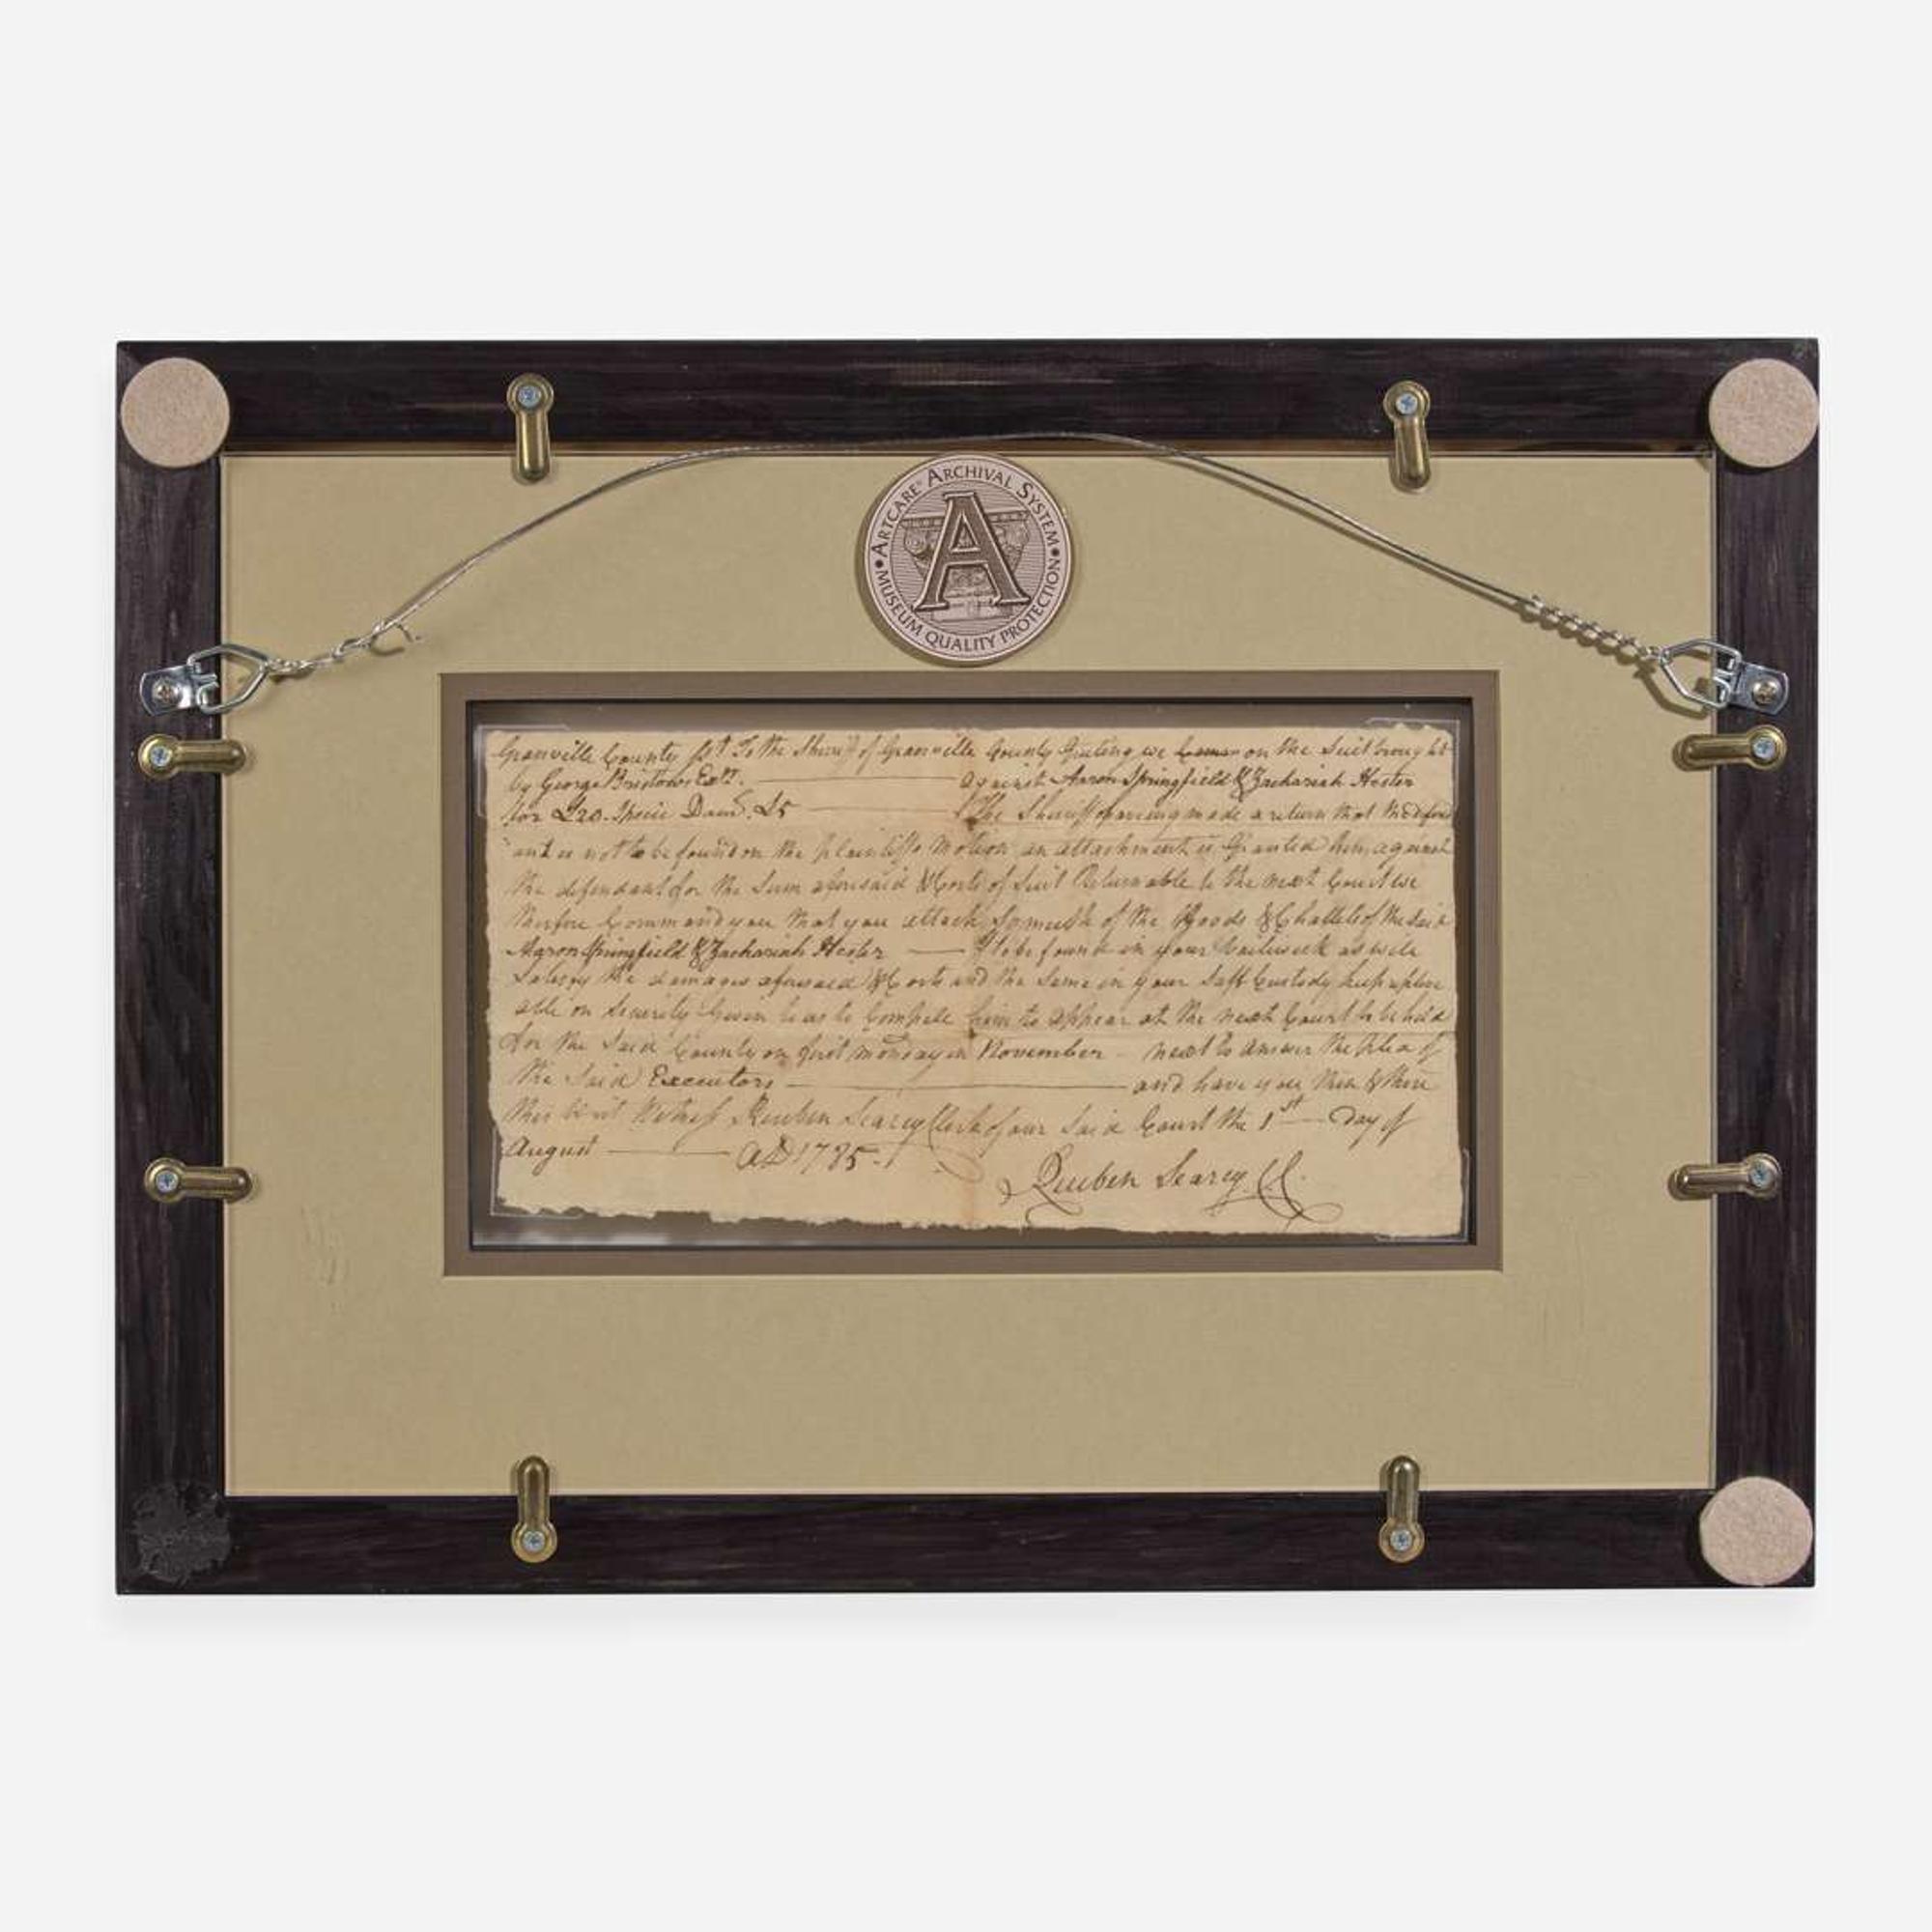 ARTCARE® ARCHIVAL SYSTEM
• MUSEUM QUALITY PROTECTION •
A
Granville County To the Sheriff of Granville County Greeting we on the Suit brought
by George Bristows Exrs. against Aaron Springfield & Zachariah Hester
for Damg. £5 The Sheriff having made a return that the defend
ant is not to be found on the plaintiffs Motion an attachment is Granted him against
the defendant for the Sum aforesaid & Costs of Suit Returnable to the next Court we
therfore Command you that you attach Somuch of the Goods & Chattels of the said
Aaron Springfield & Zachariah Hester If to be found in your Bailiwick as will
Satisfy the damages aforesaid & Costs and the Same in your Safe Custody keep
able on Security Given so as to Compell him to appear at the next Court to be held
for the Said County on first monday in November next to answer the plea of
the Said Executors and have you then & there
this Writ Witness Reuben Searcy Clerk of our Said Court the 1st Day of
August AD 1785.
Reuben Searcy CC.